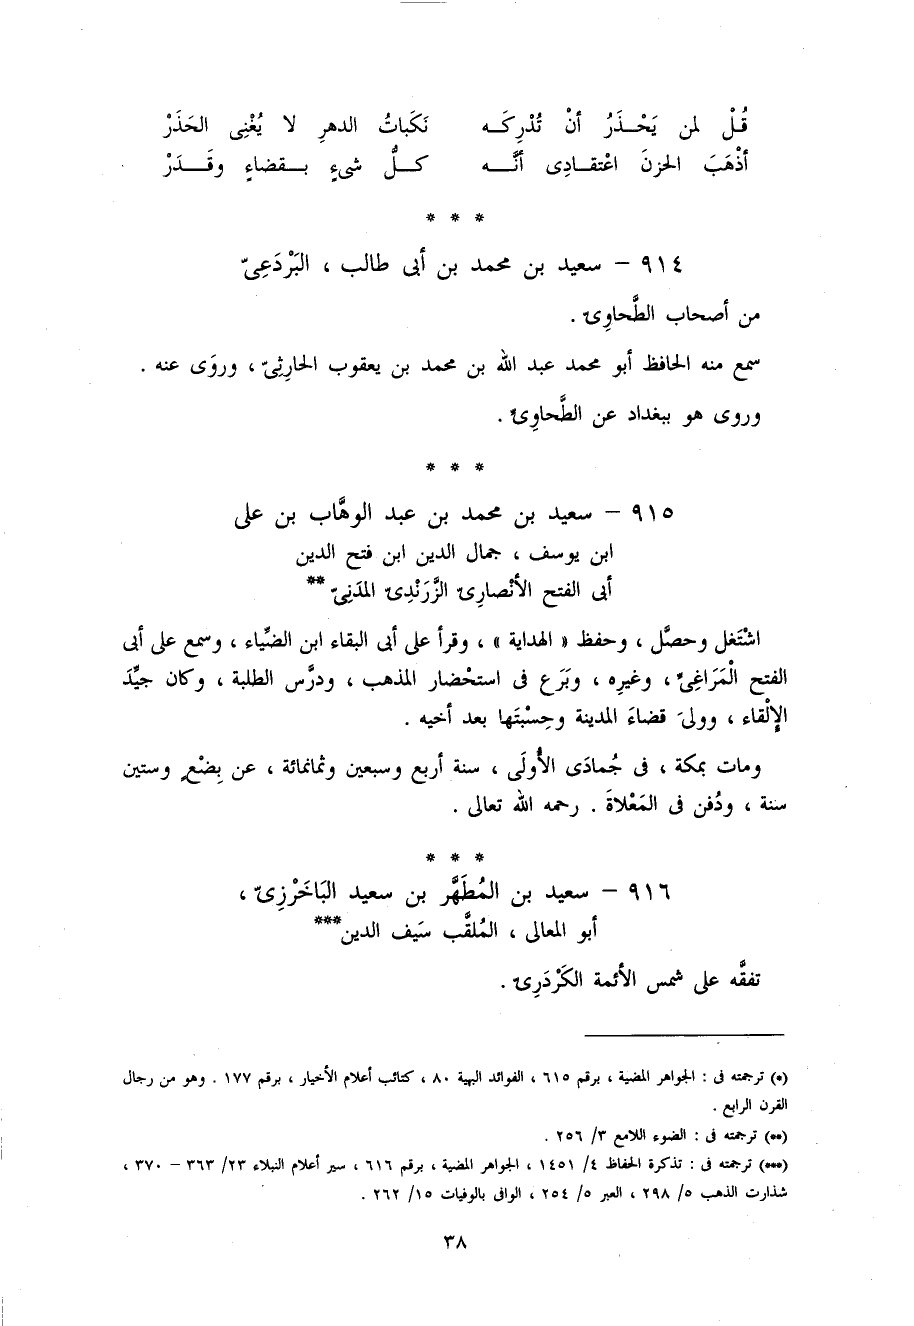 قُلْ لمن يَحْذَرُ أنْ تُدْرِكَه نَكَباتُ الدهرِ لا يُغْنِى الحَذَرْ
أذْهَبَ الحزنَ اعْتقادِى أنَّه كلُّ شىءٍ بقضاءٍ وقَدَرْ
* * *
٩١٤ – سعيد بن محمد بن أبى طالب ، البَرْدَعِىّ
من أصحاب الطَّحاوِىّ .
سمع منه الحافظ أبو محمد عبد الله بن محمد بن يعقوب الحارِثِىّ ، وروَى عنه .
وروى هو ببغداد عن الطَّحاوِىِّ .
* * *
٩١٥ – سعيد بن محمد بن عبد الوهَّاب بن على
ابن يوسف ، جمال الدين ابن فتح الدين
أبى الفتح الأنْصارِىّ الزَّرَنْدِىّ المدَنِىّ **
اشْتَغل وحصَّل ، وحفظ « الهداية » ، وقرأ على أبى البقاء ابن الضِّياء ، وسمع على أبى
الفتح الْمَرَاغِىِّ ، وغيرِه ، وبَرَع فى استحْضار المذهب ، ودرَّس الطلبة ، وكان جيِّدَ
الإلْقاء ، وولىَ قضاءَ المدينة وحِسْبَتَها بعد أخيه .
ومات بمكة ، فى جُمادَى الأُولَى ، سنة أربع وسبعين وثمانمائة ، عن بِضْعٍ وستين
سنة ، ودُفن فى المَعْلاةَ . رحمه الله تعالى .
* * *
٩١٦ – سعيد بن المُطَهَّر بن سعيد البَاخَرْزِىّ ،
أبو المعالى ، المُلقَّب سَيف الدين***
تفقَّه على شمس الأئمة الكَرْدَرِىّ .
(*) ترجمته فى : الجواهر المضية ، برقم ٦١٥ ، الفوائد البهية ٨٠ ، كتائب أعلام الأخيار ، برقم ١٧٧ . وهو من رجال
القرن الرابع .
(**) ترجمته فى : الضوء اللامع ٣/ ٢٥٦ .
(***) ترجمته فى : تذكرة الحفاظ ٤/ ١٤٥١ ، الجواهر المضية ، برقم ٦١٦ ، سير أعلام النبلاء ٢٣/ ٣٦٣ – ٣٧٠ ،
شذارت الذهب ٥/ ٢٩٨ ، العبر ٥/ ٢٥٤ ، الوافى بالوفيات ١٥/ ٢٦٢ .
٣٨